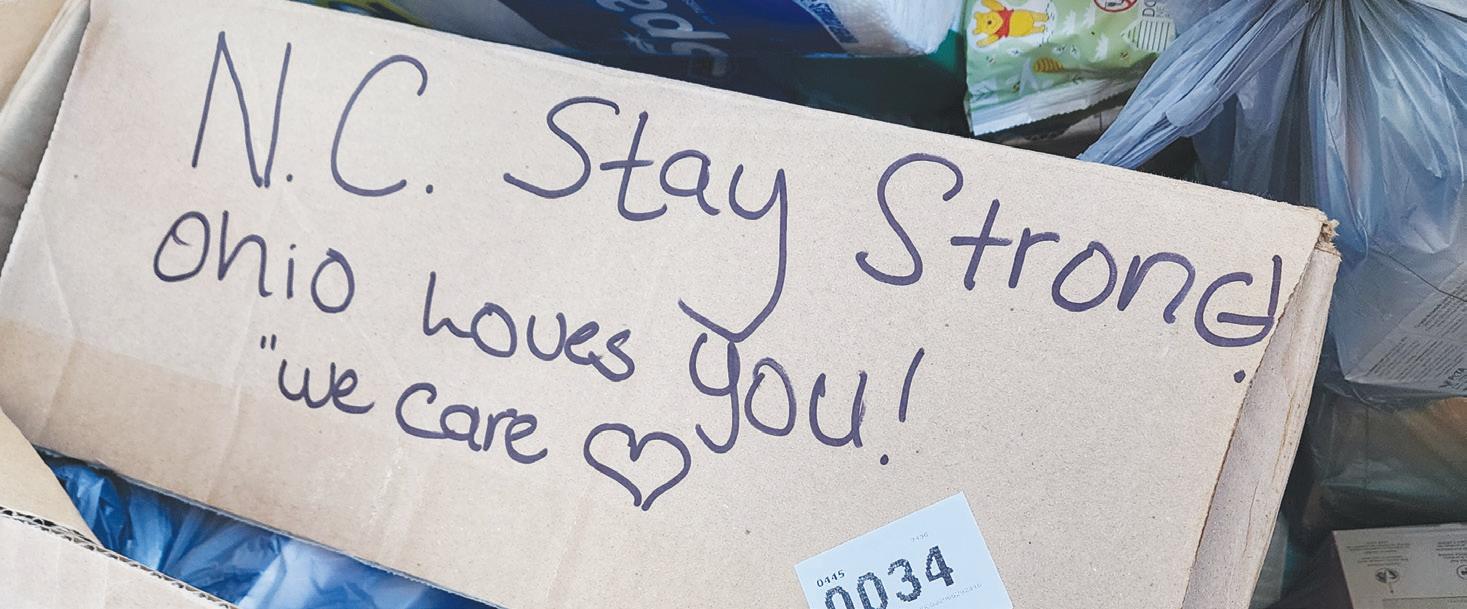 N.C. Stay Strong.
Ohio Loves you!
"we care
0445
0034